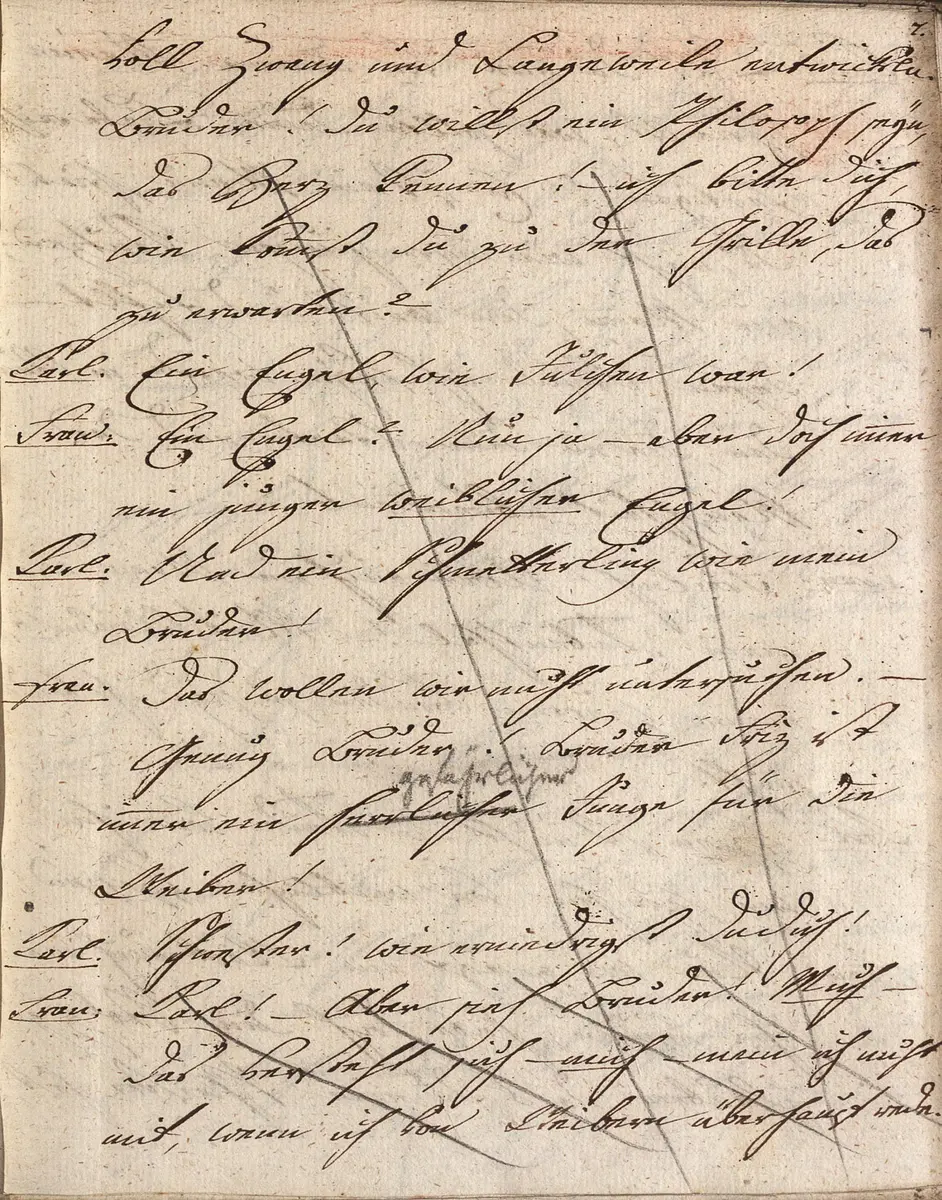 7.
voll Zwang und Langeweile entwickeln.
Bruder! du willst ein Philosoph seyn,
das Herz kennen! – ich bitte dich,
wie kom̄st du zu der Grille, das
zu erwarten?
Karl. Ein Engel, wie Julchen war!
Fran: Ein Engel? Nun ja – aber doch im̄er
ein junger weiblicher Engel!
Karl. Und ein Schmetterling wie mein
Bruder!
Fran. Das wollen wir nicht untersuchen. –
Genug Bruder! Bruder Friz ist
gefährlicher
im̄er ein herrlicher Junge für die
Weiber!
Karl. Schwester! wie erniedrigst du dich!
Fran: Karl! – Aber sieh Bruder! Mich –
das versteht sich – mich – mein ich nicht
mit, wenn ich von Weibern überhaupt rede.